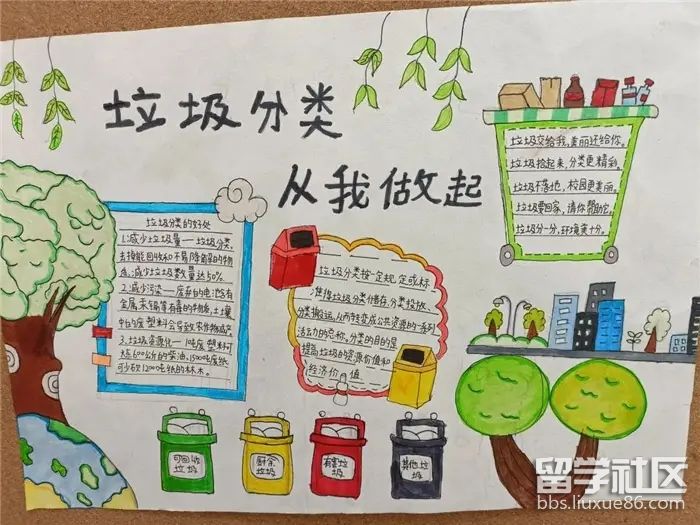 垃圾分类
从我做起
垃圾分类的好处
1.减少垃圾量——垃圾分类,
去掉能回收和不易降解的物
质,减少垃圾数量达50%.
2.减少污染——废弃的电池含有
金属汞镉等有毒的物质,土壤
中的废塑料会导致农作物减产
3.垃圾资源化——1吨废塑料可
炼600公斤的柴油,1500吨废纸
可少砍12000吨纸的林木.
垃圾分类按一定规定或标
准将垃圾分类储存,分类投放、
分类搬运,从而转变成公共资源的一系列
活动的总称.分类的目的是
提高垃圾的资源价值和
经济价值
垃圾交给我,美丽还给你.
垃圾捡起来,分类更精彩.
垃圾不落地,校园更美丽.
垃圾要回家,请你帮助它.
垃圾分一分,环境美十分.
可回收
垃圾
厨余
垃圾
有害垃
圾
其他垃
圾
留学社区
bbs.liuxue86.com